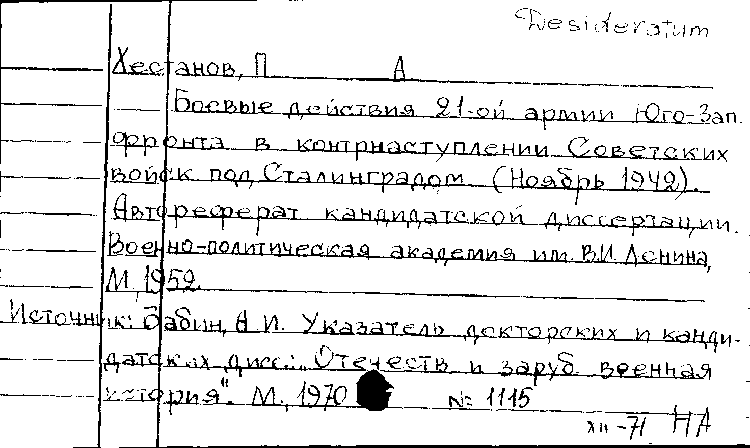 Desideratum
Хестанов, П А
Боевые действия 21-ой армии Юго-Зап.
фронта в контрнаступлении Советских
войск под Сталинградом (Ноябрь 1942).
Автореферат кандидатской диссертации.
Военно-политическая академия им. В.И. Ленина,
М, 1952.
Источник: Бабин, А.И. Указатель докторских и канди-
датских дисс.: "Отечеств. и заруб. военная
история". М., 1970 № 1115
XII-71 НА